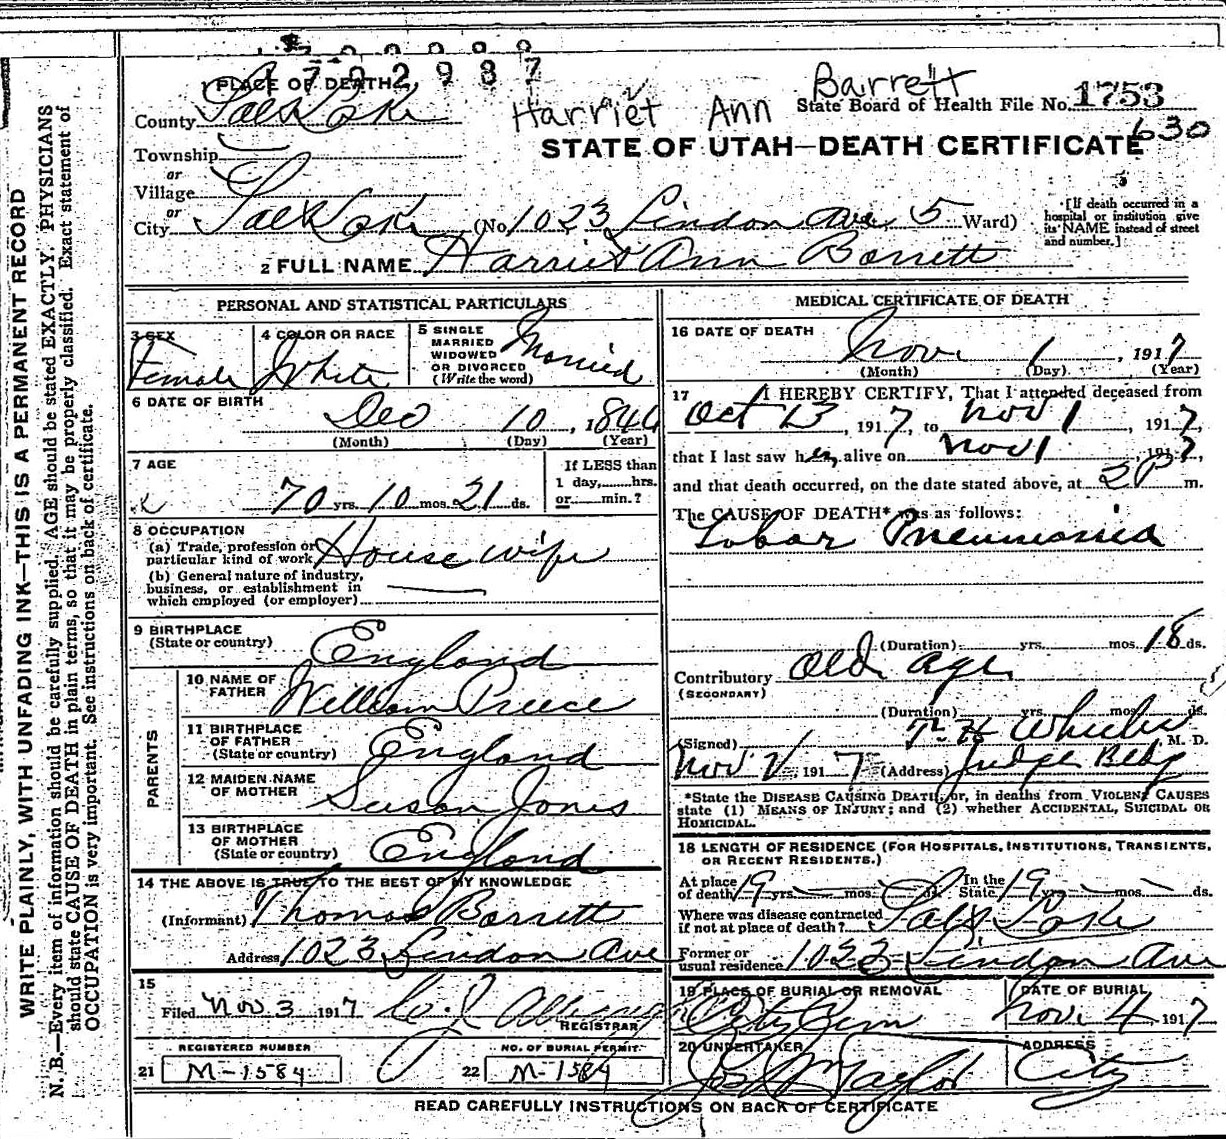 1702987
Harriet Ann Barrett
PLACE OF DEATH
State Board of Health File No. 1753
630
County Salt Lake
STATE OF UTAH—DEATH CERTIFICATE
Township
or
Village
or
City Salt Lake (No. 1023 Lindon Ave. 5 Ward)
[If death occurred in a
hospital or institution give
its NAME instead of street
and number.]
2 FULL NAME Harriet Ann Barrett
PERSONAL AND STATISTICAL PARTICULARS
3 SEX
Female
4 COLOR OR RACE
White
5 SINGLE
MARRIED
WIDOWED
OR DIVORCED
(Write the word)
Married
6 DATE OF BIRTH
Dec 10, 1846
(Month) (Day) (Year)
7 AGE
70 yrs. 10 mos. 21 ds.
If LESS than
1 day, hrs.
or min.?
8 OCCUPATION
(a) Trade, profession or
particular kind of work House wife
(b) General nature of industry,
business, or establishment in
which employed (or employer)
9 BIRTHPLACE
(State or country) England
PARENTS
10 NAME OF
FATHER William Preece
11 BIRTHPLACE
OF FATHER
(State or country) England
12 MAIDEN NAME
OF MOTHER Susan Jones
13 BIRTHPLACE
OF MOTHER
(State or country) England
14 THE ABOVE IS TRUE TO THE BEST OF MY KNOWLEDGE
(Informant) Thomas Barrett
Address 1023 Lindon Ave
15
Filed Nov 3 1917
REGISTRAR
REGISTERED NUMBER
21 M-1584
NO. OF BURIAL PERMIT
22 M-1584
MEDICAL CERTIFICATE OF DEATH
16 DATE OF DEATH
Nov. 1, 1917
(Month) (Day) (Year)
17 I HEREBY CERTIFY, That I attended deceased from
Oct 13, 1917, to Nov 1, 1917,
that I last saw her alive on Nov 1, 1917,
and that death occurred, on the date stated above, at 2 P m.
The CAUSE OF DEATH* was as follows:
Lobar Pneumonia
(Duration) yrs. mos. 18 ds.
Contributory Old Age
(SECONDARY)
(Duration) yrs. mos. ds.
(Signed) Wheeler M. D.
Nov 1917 (Address) Judge Bldg
*State the DISEASE CAUSING DEATH, or, in deaths from VIOLENT CAUSES
state (1) MEANS OF INJURY; and (2) whether ACCIDENTAL, SUICIDAL OR
HOMICIDAL.
18 LENGTH OF RESIDENCE (FOR HOSPITALS, INSTITUTIONS, TRANSIENTS,
OR RECENT RESIDENTS.)
At place
of death 19 yrs. mos. ds. In the
State 19 yrs. mos. ds.
Where was disease contracted
if not at place of death? Salt Lake
Former or
usual residence 1023 Lindon Ave
19 PLACE OF BURIAL OR REMOVAL
City Cem
DATE OF BURIAL
Nov. 4, 1917
20 UNDERTAKER
Jos Wm Taylor
ADDRESS
City
READ CAREFULLY INSTRUCTIONS ON BACK OF CERTIFICATE
WRITE PLAINLY, WITH UNFADING INK—THIS IS A PERMANENT RECORD
N. B.—Every item of information should be carefully supplied. AGE should be stated EXACTLY. PHYSICIANS
should state CAUSE OF DEATH in plain terms, so that it may be properly classified. Exact statement of
OCCUPATION is very important. See instructions on back of certificate.